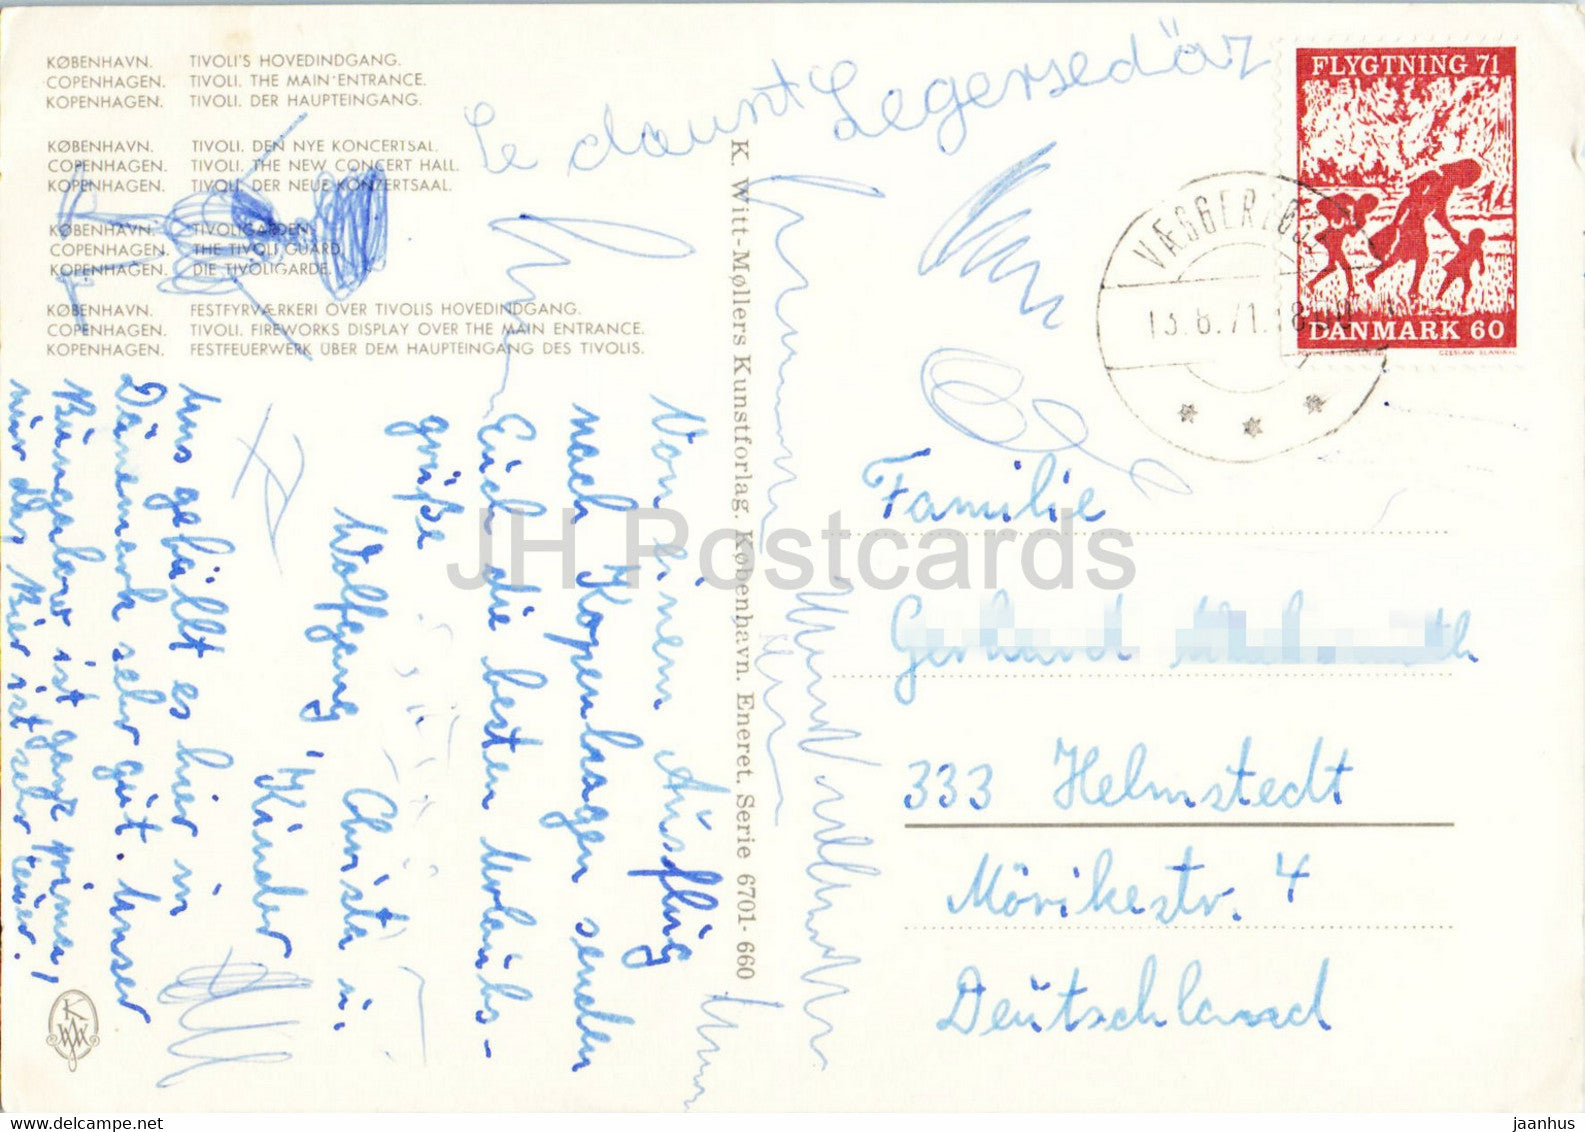 KØBENHAVN. TIVOLI'S HOVEDINDGANG.
COPENHAGEN. TIVOLI. THE MAIN ENTRANCE.
KOPENHAGEN. TIVOLI. DER HAUPTEINGANG.
KØBENHAVN. TIVOLI. DEN NYE KONCERTSAL.
COPENHAGEN. TIVOLI. THE NEW CONCERT HALL.
KOPENHAGEN. TIVOLI. DER NEUE KONZERTSAAL.
KØBENHAVN. TIVOLIGARDEN.
COPENHAGEN. THE TIVOLI GUARD.
KOPENHAGEN. DIE TIVOLIGARDE.
KØBENHAVN. FESTFYRVÆRKERI OVER TIVOLIS HOVEDINDGANG.
COPENHAGEN. TIVOLI. FIREWORKS DISPLAY OVER THE MAIN ENTRANCE.
KOPENHAGEN. FESTFEUERWERK ÜBER DEM HAUPTEINGANG DES TIVOLIS.
Von einem Ausflug
nach Kopenhagen senden
Euch die besten Urlaubs-
grüße
Wolfgang, Christa u.
Kinder
Uns gefällt es hier in
Dänemark sehr gut. Unser
Bungalow ist ganz prima,
nur das Bier ist sehr teuer.
K. Witt-Møllers Kunstforlag. København. Eneret. Serie 6701-660
FLYGTNING 71
DANMARK 60
CZESLAW SLANIA
VÆGGERLØSE
13.8.71.18
Familie
Gerhard
333 Helmstedt
Mörikestr. 4
Deutschland
KWM
JH Postcards
www.delcampe.net
jaanhus